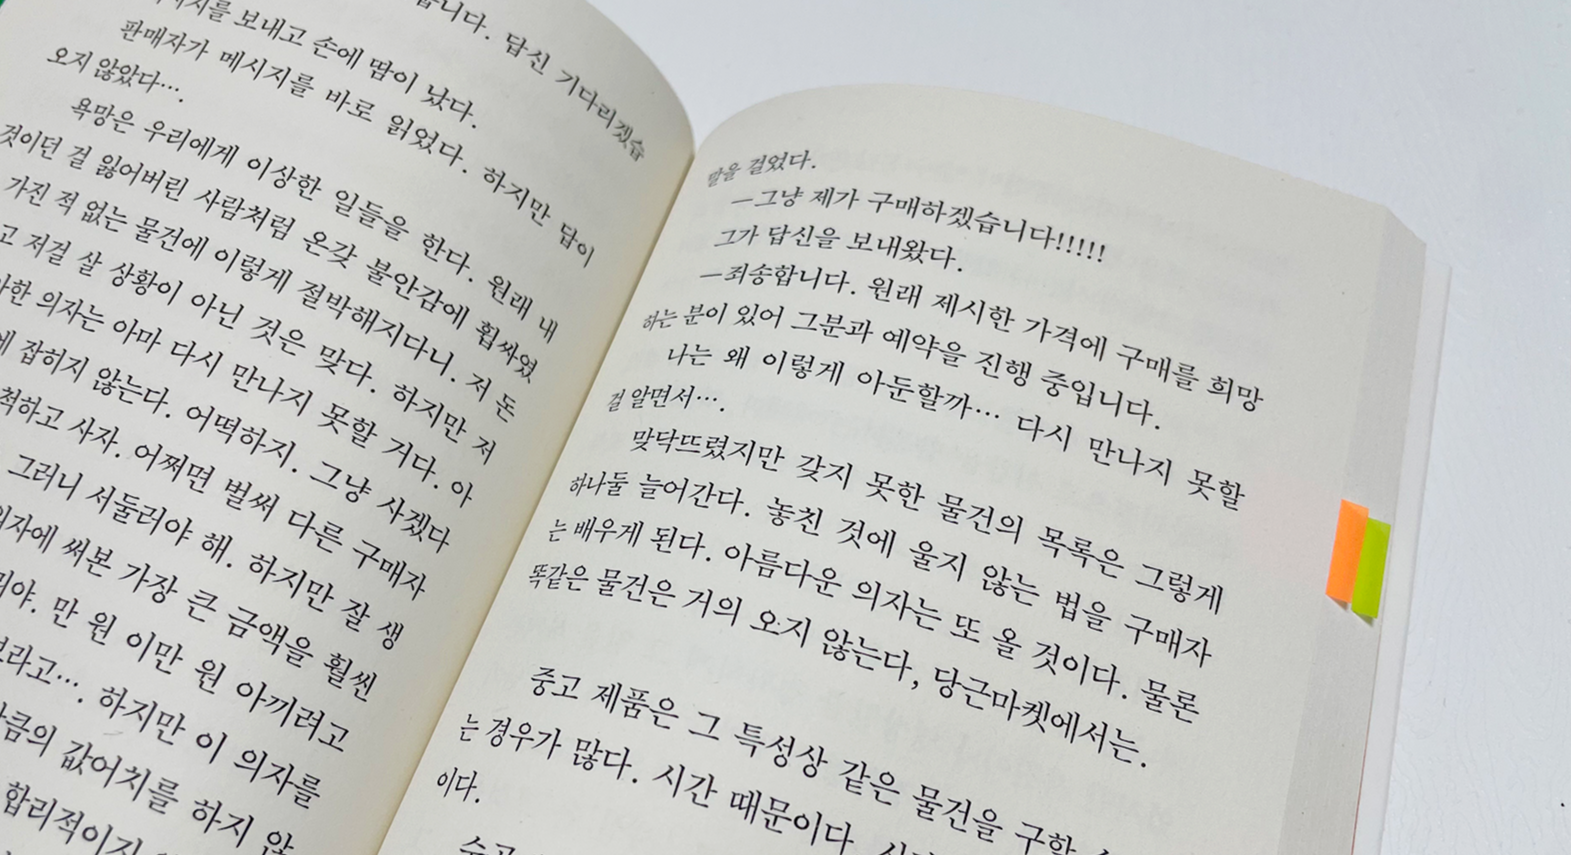 습니다. 답신 기다리겠습
보내고 손에 땀이 났다.
판매자가 메시지를 바로 읽었다. 하지만 답이
오지 않았다….
욕망은 우리에게 이상한 일들을 한다. 원래 내
것이던 걸 잃어버린 사람처럼 온갖 불안감에 휩싸였
가진 적 없는 물건에 이렇게 절박해지다니. 저 돈
고 저걸 살 상황이 아닌 것은 맞다. 하지만 저
의자는 아마 다시 만나지 못할 거다. 아
에 잡히지 않는다. 어떡하지. 그냥 사겠다
척하고 사자. 어쩌면 벌써 다른 구매자
그러니 서둘러야 해. 하지만 잘 생
의자에 써본 가장 큰 금액을 훨씬
만 원 이만 원 아끼려고
하지만 이 의자를
값어치를 하지 않
합리적이지
말을 걸었다.
—그냥 제가 구매하겠습니다!!!!!
그가 답신을 보내왔다.
—죄송합니다. 원래 제시한 가격에 구매를 희망
하는 분이 있어 그분과 예약을 진행 중입니다.
나는 왜 이렇게 아둔할까… 다시 만나지 못할
걸 알면서….
맞닥뜨렸지만 갖지 못한 물건의 목록은 그렇게
하나둘 늘어간다. 놓친 것에 울지 않는 법을 구매자
는 배우게 된다. 아름다운 의자는 또 올 것이다. 물론
똑같은 물건은 거의 오지 않는다, 당근마켓에서는.
중고 제품은 그 특성상 같은 물건을 구할
는 경우가 많다. 시간 때문이다
이다.